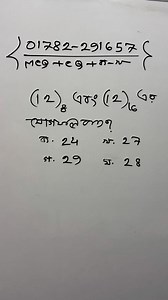 01782-291657
MCQ + CQ + ক-খ
(12)₈ এবং (12)₁₆ এর
যোগফল কত?
ক. 24 খ. 27
গ. 29 ঘ. 28